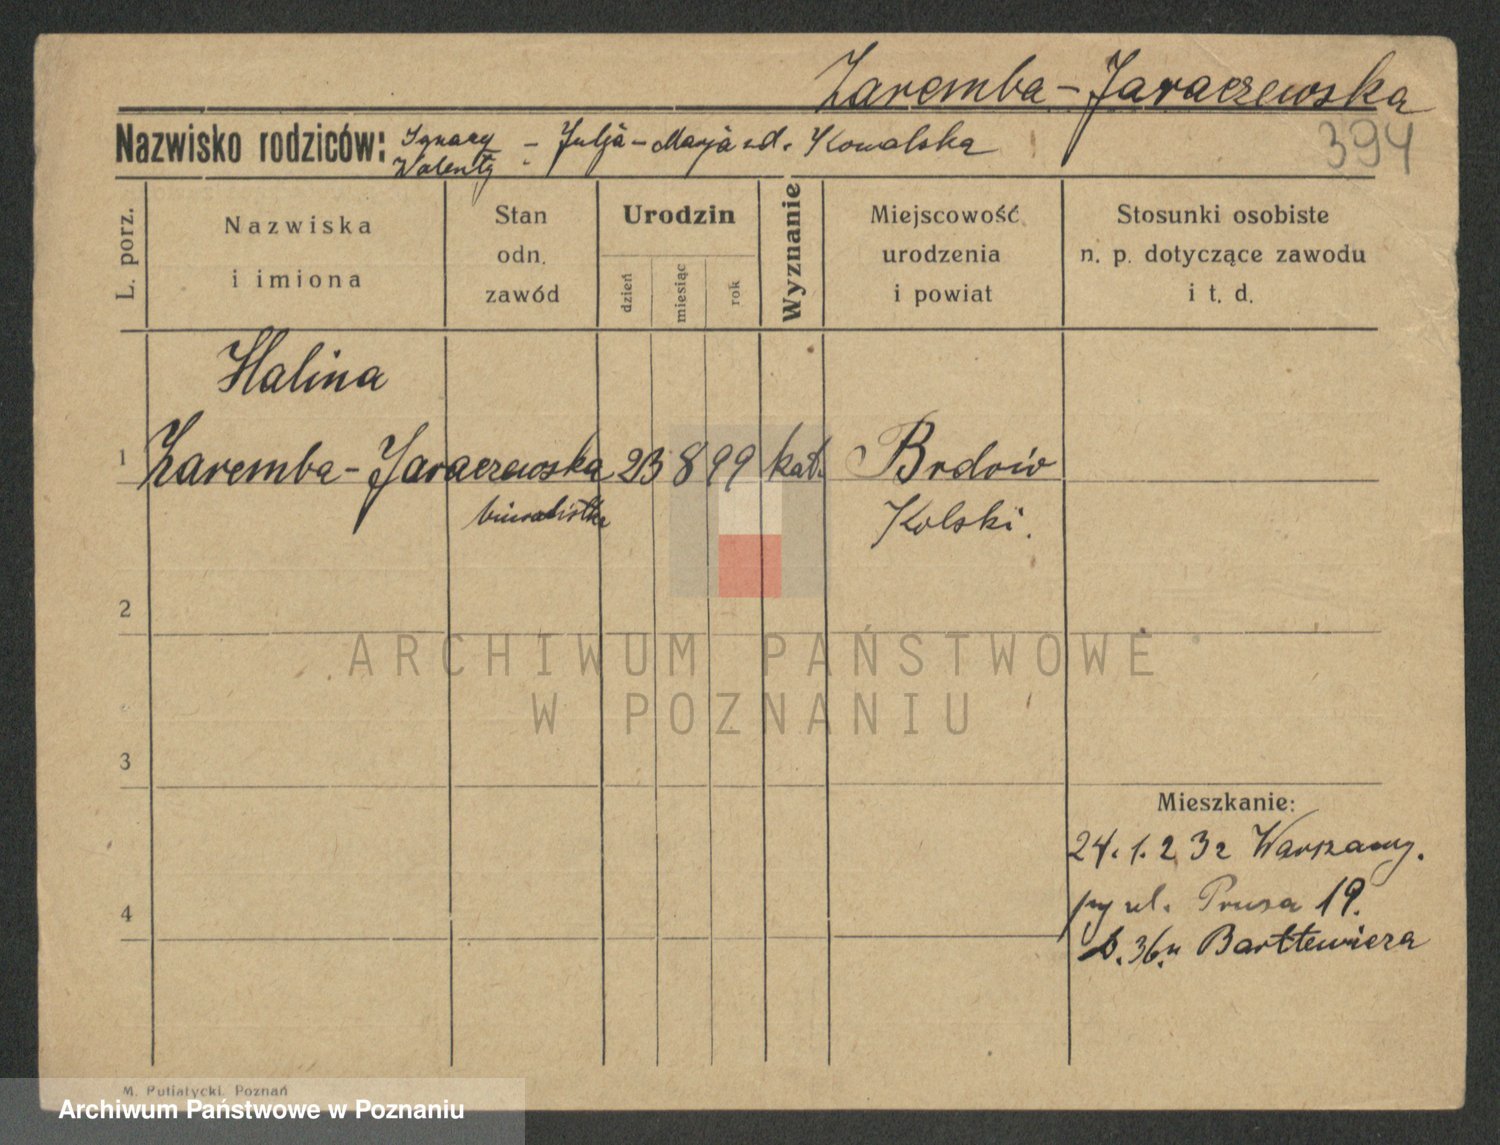 Zaremba-Jaraczewska
394
Nazwisko rodziców: Ignacy Walenty - Julja-Marja zd. Kowalska
L. porz.
Nazwiska i imiona
Stan odn. zawód
Urodzin
dzień
miesiąc
rok
Wyznanie
Miejscowość urodzenia i powiat
Stosunki osobiste n. p. dotyczące zawodu i t. d.
Halina
1 Zaremba-Jaraczewska 23 8 99 kat. Brdów
biuralistka Kolski.
2
ARCHIWUM PAŃSTWOWE
W POZNANIU
3
Mieszkanie:
24.1.23 z Warszawy.
4
py ul. Prusa 19.
36 u
M. Putiatycki, Poznań
Archiwum Państwowe w Poznaniu